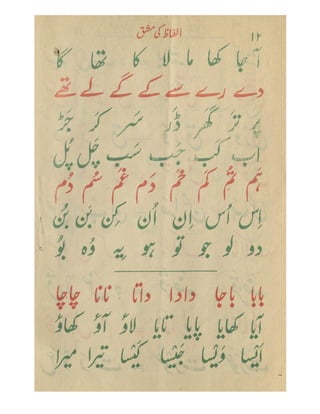 ۱۲
الفاظ کی مشق
آ جا کھا ما لا کا تھا گا
دے رے سے کے گے لے تھے
پَر تَر گھَر ڈَر سَر کَر جَڑ
اَب کَب جَب سَب چَل پُل
ہَم تُم کَم خَم دَم غَم سُم دُم
اِس اُس اِن اُن کِن بَن بُن
دو لو جو تو ہو یہ وُہ بُو
بابا باجا دادا داتا نانا چاچا
آیا کھایا پایا تایا لاؤ آؤ کھاؤ
اَیسا وَیسا جَیسا کَیسا تیرا میرا